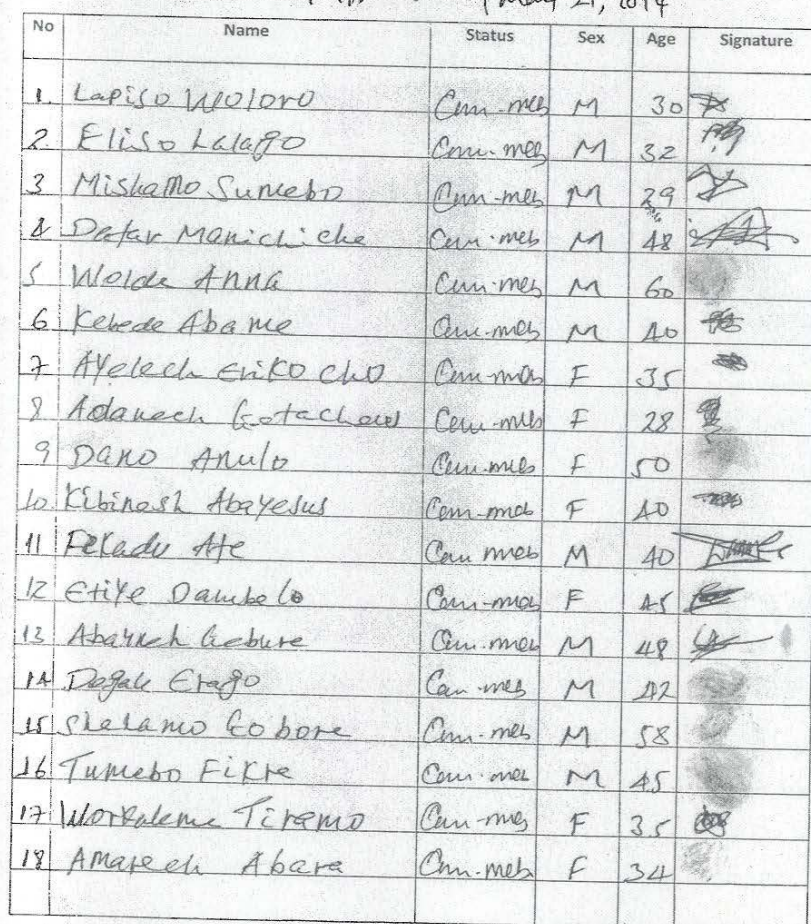 May 21, 2014
No Name Status Sex Age Signature
1. Lapiso Woloro Com-meb M 30
2. Eliso Lalago Com-meb M 32
3 Mishamo Sumebo Com-meb M 29
4 Datar Manichiche Com-meb M 48
5 Wolde Anna Com-meb M 60
6 Kebede Abame Com-meb M 40
7 Ayelech Eriko cho Com-meb F 35
8 Adanech Getachew Com-meb F 28
9 Dano Anulo Com-meb F 50
10 Kibinesh Abayesus Com-meb F 40
11 Fekadu Ate Com meb M 40
12 Etiye Dambelo Com-meb F 45
13 Abayneh Gebure Com-meb M 48
14 Degale Erago Com-meb M 42
15 Shelamo Gobore Com-meb M 58
16 Tumebo Fikre Com-meb M 45
17 Workaleme Tiramo Com-meb F 35
18 Amarech Abara Com-meb F 34